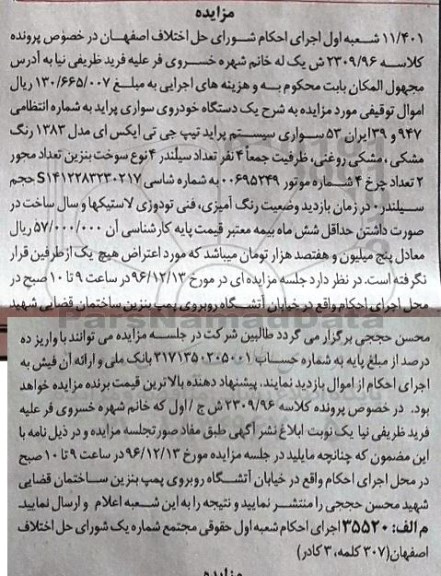 مزایده
۱۱/۴۰۱ شعبه اول اجرای احکام شورای حل اختلاف اصفهان در خصوص پرونده
کلاسه ۲۳۰۹/۹۶ ش یک له خانم شهره خسروی فر علیه فرید ظریفی نیا به آدرس
مجهول المکان بابت محکوم به و هزینه های اجرایی به مبلغ ۱۳۰/۶۶۵/۰۰۷ ریال
اموال توقیفی مورد مزایده به شرح یک دستگاه خودروی سواری پراید به شماره انتظامی
۹۴۷ و ۳۹ ایران ۵۳ سواری سیستم پراید تیپ جی تی ایکس ای مدل ۱۳۸۳ رنگ
مشکی ، مشکی روغنی، ظرفیت جمعاً ۴ نفر تعداد سیلندر ۴ نوع سوخت بنزین تعداد محور
۲ تعداد چرخ ۴ شماره موتور ۰۰۶۹۵۲۴۹ به شماره شاسی S۱۴۱۲۲۸۳۲۳۰۲۱۷ حجم
سیلندر ۰ در زمان بازدید وضعیت رنگ آمیزی، فنی تودوزی لاستیکها و سال ساخت در
صورت داشتن حداقل شش ماه بیمه معتبر قیمت پایه کارشناسی آن ۵۷/۰۰۰/۰۰۰ ریال
معادل پنج میلیون و هفتصد هزار تومان میباشد که مورد اعتراض هیچ یک از طرفین قرار
نگرفته است. در نظر دارد جلسه مزایده ای در مورخ ۹۶/۱۲/۱۳ در ساعت ۹ تا ۱۰ صبح در
محل اجرای احکام واقع در خیابان آتشگاه روبروی پمپ بنزین ساختمان قضایی شهید
ParsNamadData
محسن حججی برگزار می گردد طالبین شرکت در جلسه مزایده می توانند با واریز ده
درصد از مبلغ پایه به شماره حساب ۲۱۷۱۳۵۰۲۰۵۰۰۱ بانک ملی و ارائه آن فیش به
اجرای احکام از اموال بازدید نمایند. پیشنهاد دهنده بالاترین قیمت برنده مزایده خواهد
بود. در خصوص پرونده کلاسه ۲۳۰۹/۹۶ ش ح / اول که خانم شهره خسروی فر علیه
فرید ظریفی نیا یک نوبت ابلاغ نشر آگهی طبق مفاد صورتجلسه مزایده و در ذیل نامه با
این مضمون که چنانچه مایلید در جلسه مزایده مورخ ۹۶/۱۲/۱۳ در ساعت ۹ تا ۱۰ صبح
در محل اجرای احکام واقع در خیابان آتشگاه روبروی پمپ بنزین ساختمان قضایی
شهید محسن حججی را منتشر نمایید و نتیجه را به این شعبه اعلام و ارسال نمایید.
م الف: ۳۵۵۲۰ اجرای احکام شعبه اول حقوقی مجتمع شماره یک شورای حل اختلاف
اصفهان (۳۰۷ کلمه، ۳ کادر)
مزایده